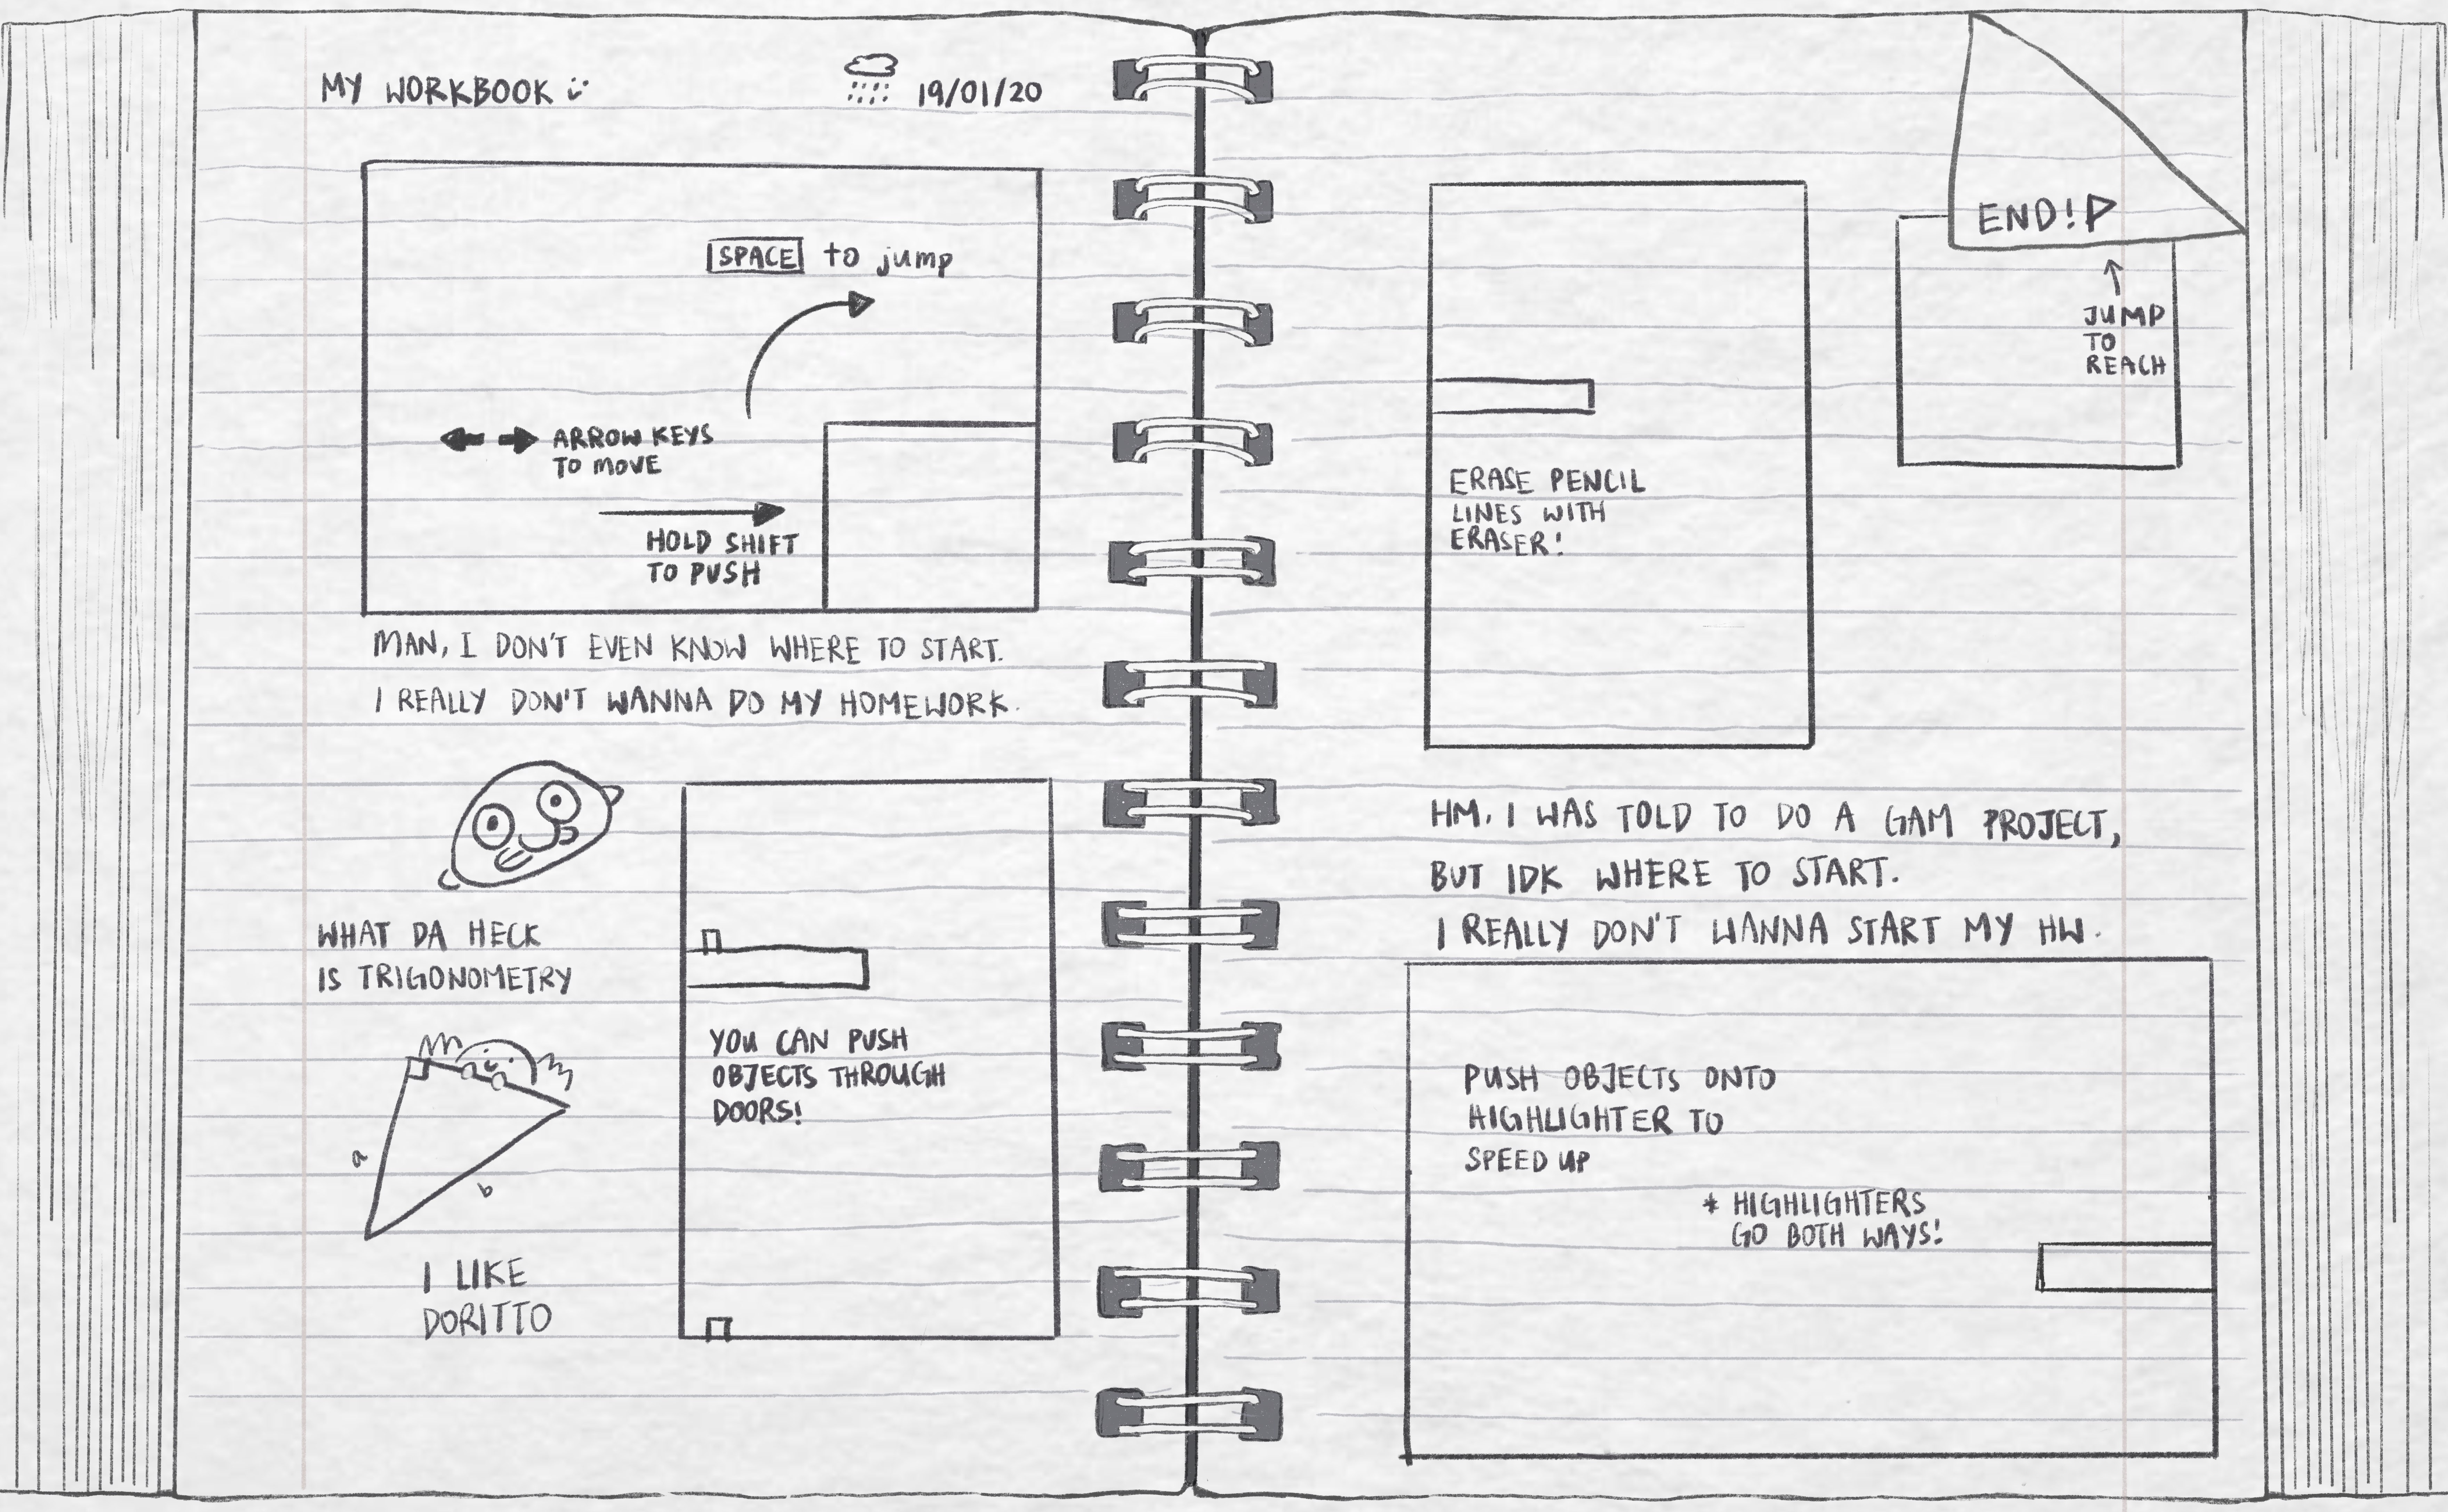 MY WORKBOOK
19/01/20
SPACE to jump
ARROW KEYS
TO MOVE
HOLD SHIFT
TO PUSH
MAN, I DON'T EVEN KNOW WHERE TO START.
I REALLY DON'T WANNA DO MY HOMEWORK.
WHAT DA HECK
IS TRIGONOMETRY
a
b
I LIKE
DORITTO
YOU CAN PUSH
OBJECTS THROUGH
DOORS!
END!
JUMP
TO
REACH
ERASE PENCIL
LINES WITH
ERASER!
HM. I WAS TOLD TO DO A GAM PROJECT,
BUT IDK WHERE TO START.
I REALLY DON'T WANNA START MY HW.
PUSH OBJECTS ONTO
HIGHLIGHTER TO
SPEED UP
* HIGHLIGHTERS
GO BOTH WAYS!